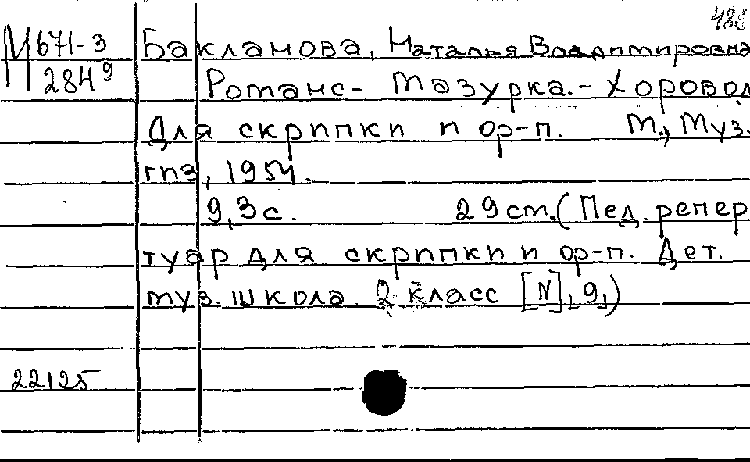 486
М 671-3 Бакланова, Наталья Владимировна
2849 Романс- Мазурка.- Хоровод
Для скрипки и ор-п. М., Муз.
гиз, 1954.
9,3с. 29 cm. (Пед. репер
туар для скрипки и ор-п. Дет.
муз. школа. 2 класс [N], 9,)
22125